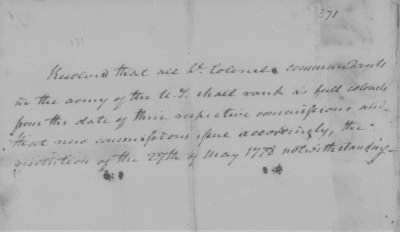 371
371
Resolved that all Lt. Colonels commandants
in the army of the U.S. shall rank as full colonels
from the date of their respective commissions and
that new commissions issue accordingly, the
resolution of the 27th of May 1778 notwithstanding